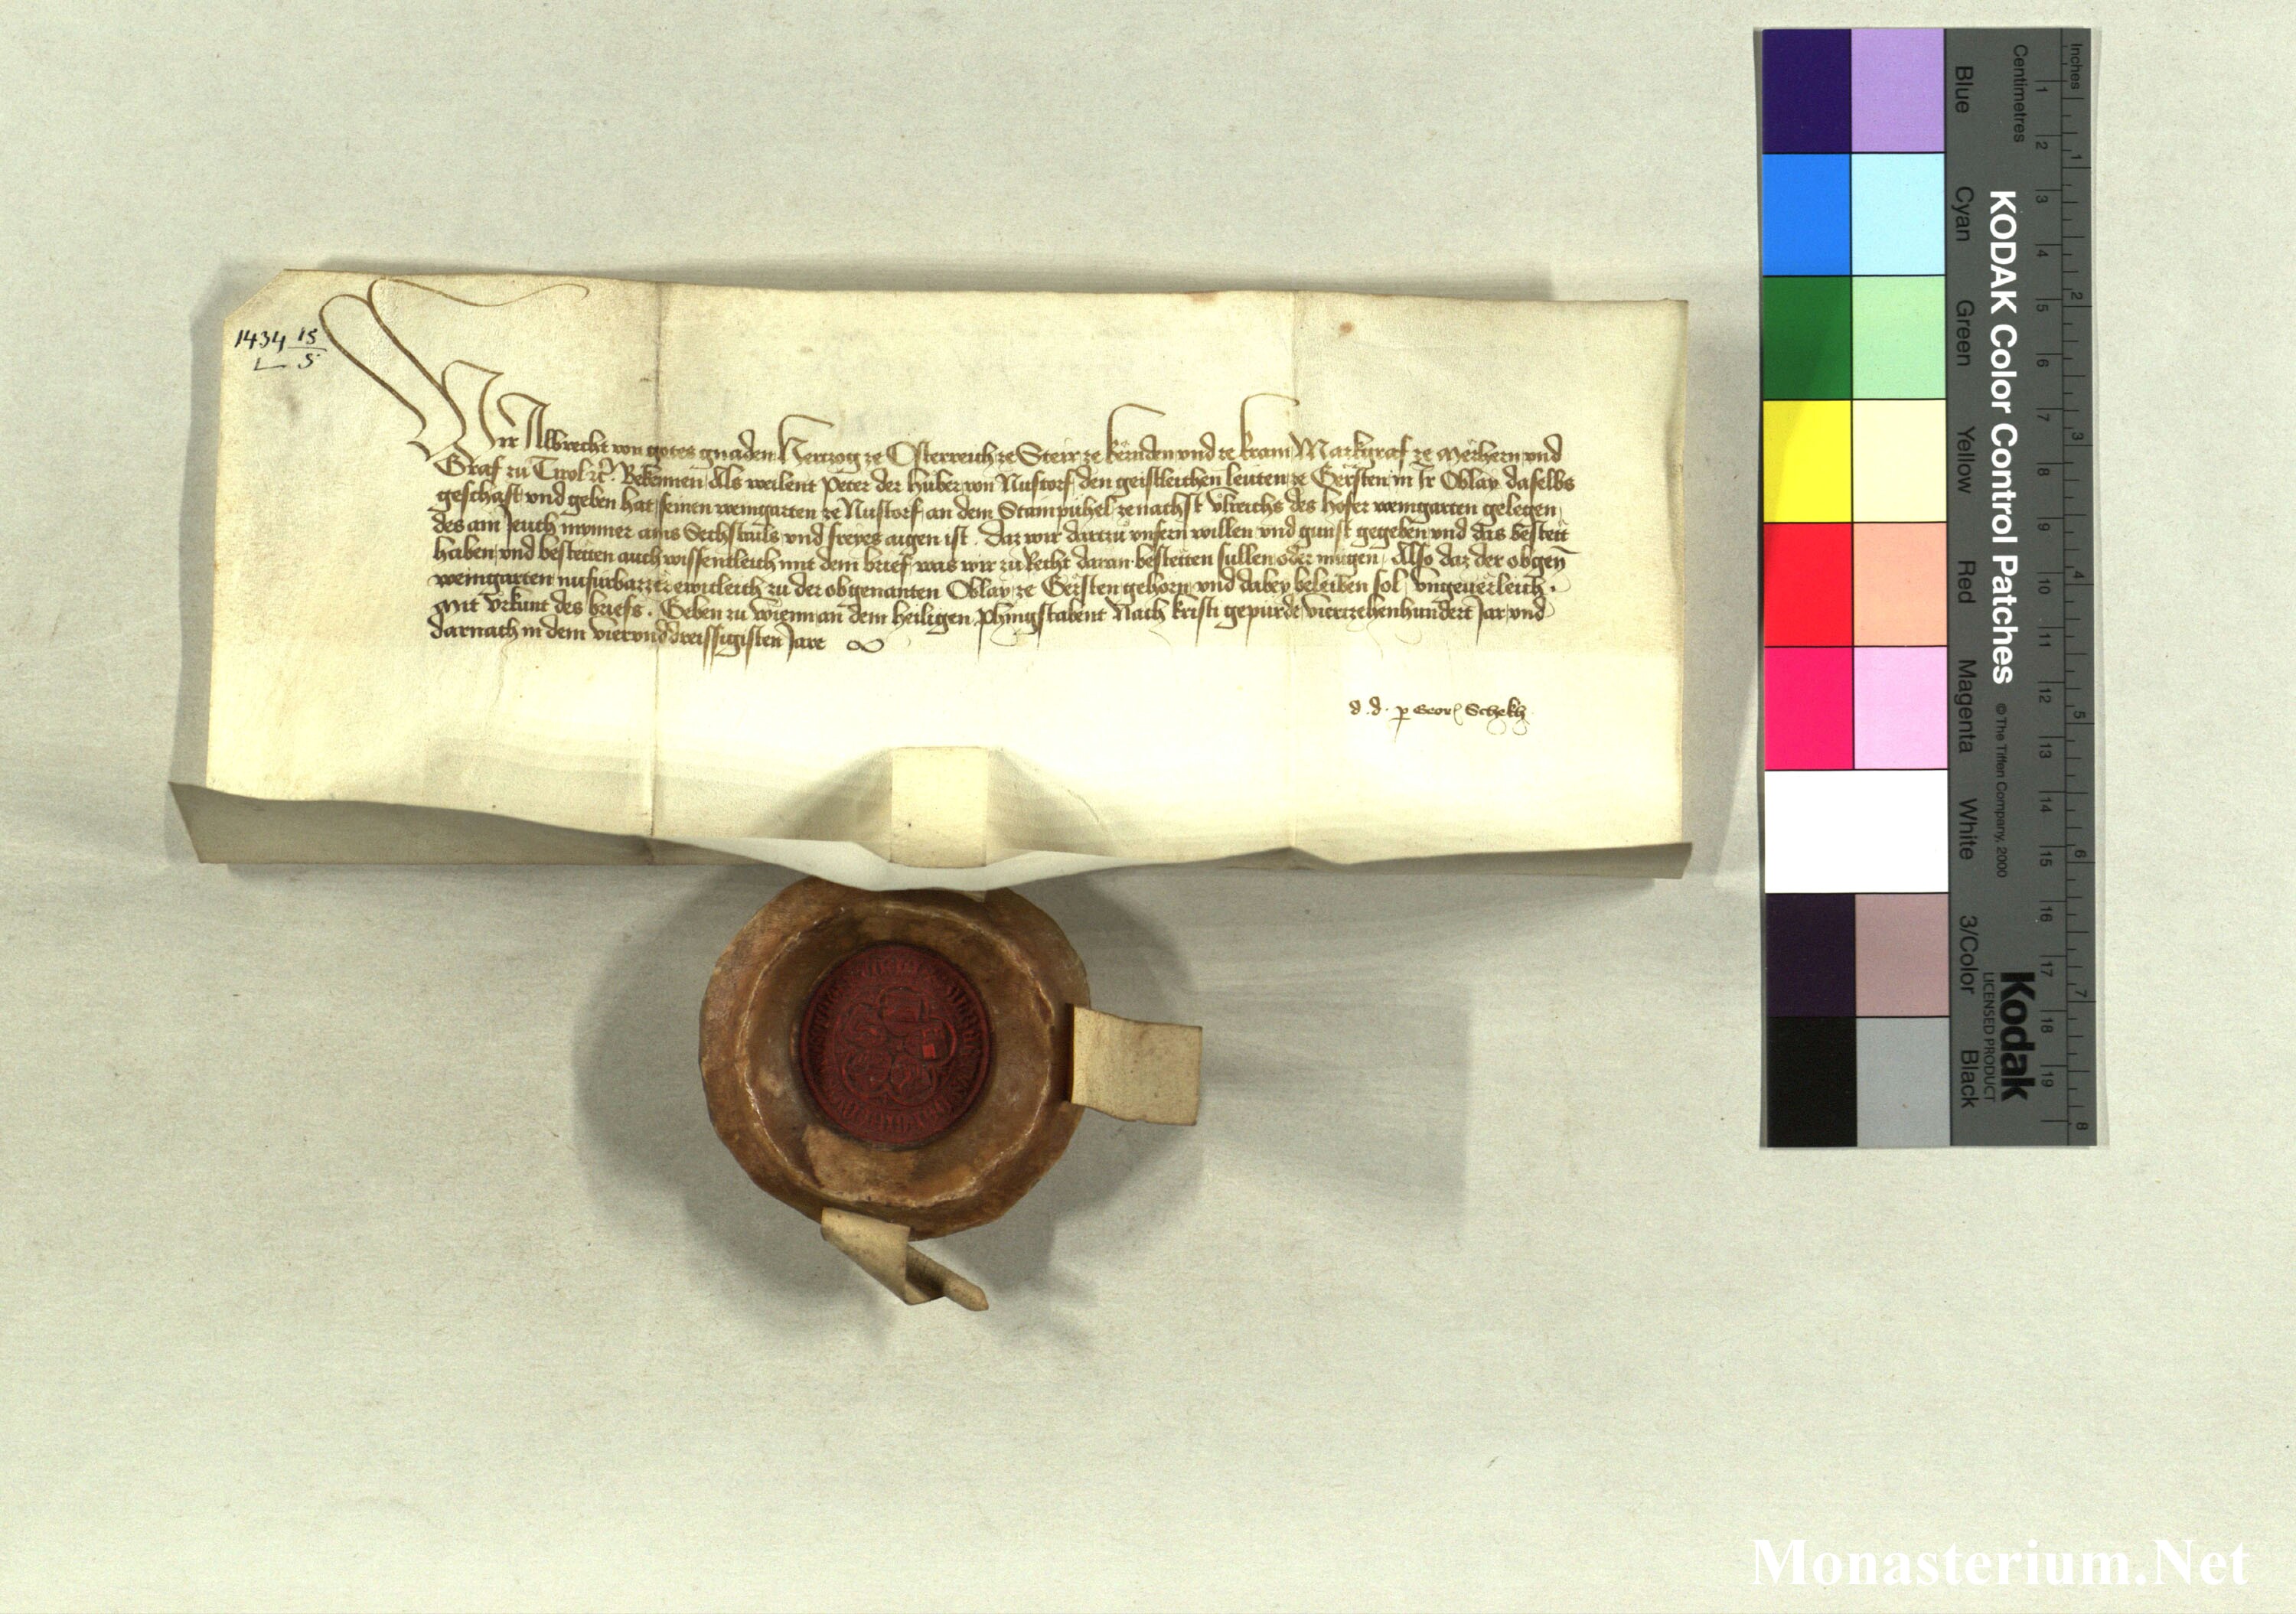 1434 15/5
Wir Albrecht von gotes gnaden Hertzog ze Osterreich ze Steir ze kernden und ze krain Markgraf ze Merhern und
Graf zu Tirol etc. Bekennen Als weilent Peter der Huber von Nustorf den geistleichen leuten ze Gersten in Ir Oblay daselbs
geschaft und geben hat seinen weingarten ze Nustorf an dem Stainpuhel ze nachst Ulreichs des Hofer weingarten gelegen
des ain Jeuch mynner ains Sechstails und freyes aigen ist. Daz wir dartzu unsern willen und gunst gegeben und das bestett
haben und bestetten auch wissentleich mit dem brief was wir zu Recht daran bestetten sullen oder mugen, Also daz der obgen
weingarten nufurbazzer ewicleich zu der obgenanten Oblay ze Gersten gehorn und dabey beleiben sol ungeverleich.
Mit Urkunt des briefs. Geben zu Wienn an dem heiligen Phingstabent Nach kristi gepurde viertzehenhundert Jar und
darnach in dem vierunddreissigisten Jare
d. d. p Geor Schekh
KODAK Color Control Patches © The Tiffen Company, 2000
Kodak
LICENSED PRODUCT
Blue Cyan Green Yellow Red Magenta White 3/Color Black
Centimetres 1 2 3 4 5 6 7 8 9 10 11 12 13 14 15 16 17 18 19
Inches 1 2 3 4 5 6 7 8
Monasterium.Net